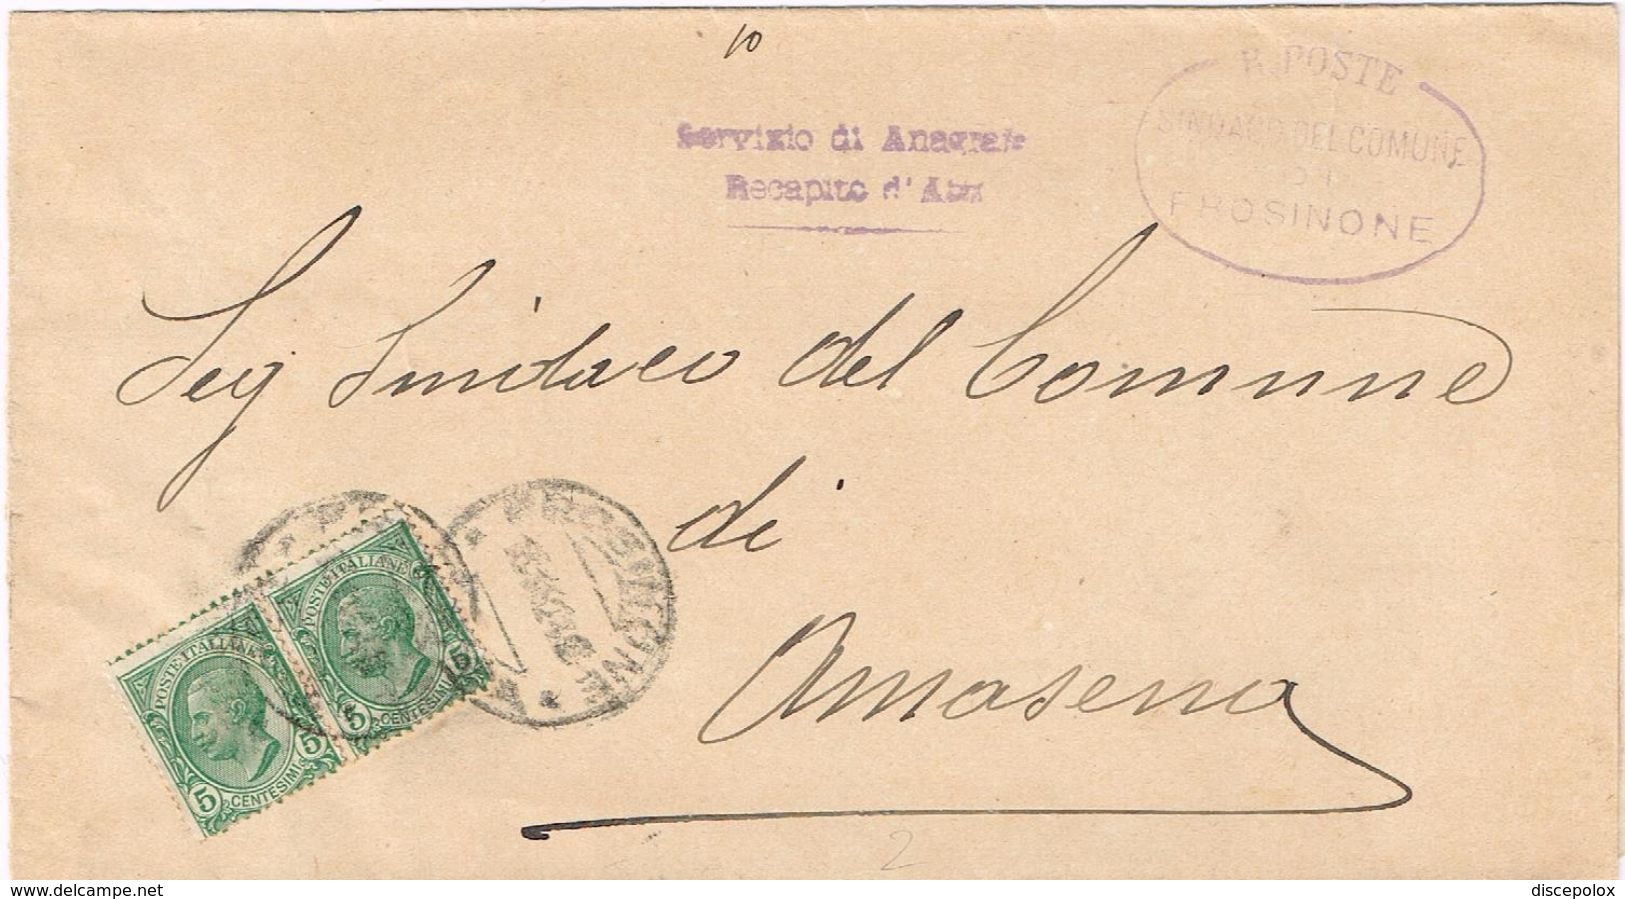 10
R. POSTE
SINDACO DEL COMUNE
DI
FROSINONE
Servizio di Anagrafe
Recapito d'
Seg Sindaco del Comune
di
Amaseno
FROSINONE
POSTE ITALIANE
5 CENTESIMI 5
POSTE ITALIANE
5 CENTESIMI 5
2
www.delcampe.net
discepolox